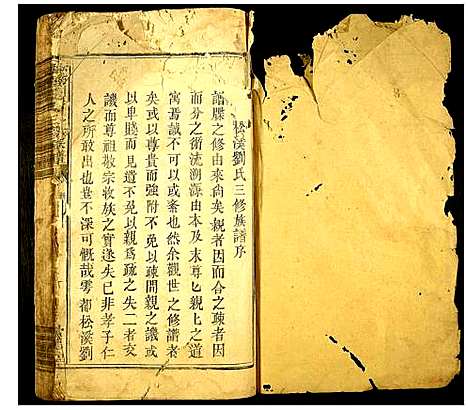 松溪劉氏三修族譜序
譜牒之修由來尚矣親者因而合之疎者因
而分之衍流溯源由本及末尊匕親上之道
寓焉誠不可以或紊也然余觀世之修譜者
矣或以尊貴而強附不免以疎間親之譏或
以卑賤而見遺不免以親爲疏之失二者交
譏而尊祖敬宗收族之實遂失已非孝子仁
人之所敢出也豈不深可慨哉雩都松溪劉